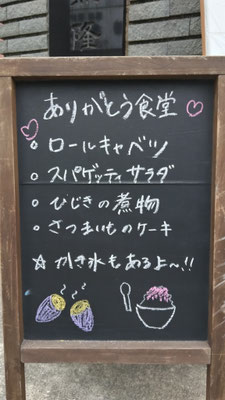 隆
ありがとう食堂
ロールキャベツ
スパゲッティサラダ
ひじきの煮物
さつまいものケーキ
☆かき氷もあるよ〜!!